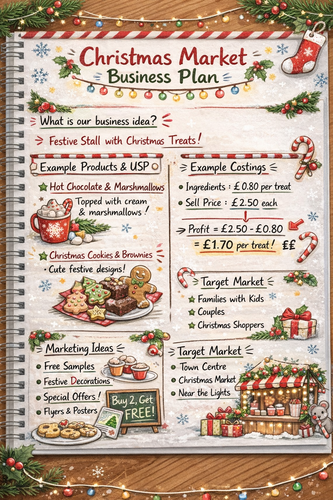 Christmas Market
Business Plan
What is our business idea?
Festive Stall with Christmas Treats!
Example Products & USP
Hot Chocolate & Marshmallows
Topped with cream
& marshmallows!
Christmas Cookies & Brownies
• Cute festive designs!
Example Costings
• Ingredients: £0.80 per treat
• Sell Price: £2.50 each
Profit = £2.50 - £0.80
= £1.70 per treat! ££
Target Market
Families with Kids
Couples
Christmas Shoppers
Marketing Ideas
• Free Samples
• Festive Decorations
• Special Offers!
• Flyers & Posters
Buy 2, Get
FREE!
Target Market
• Town Centre
• Christmas Market
• Near the Lights